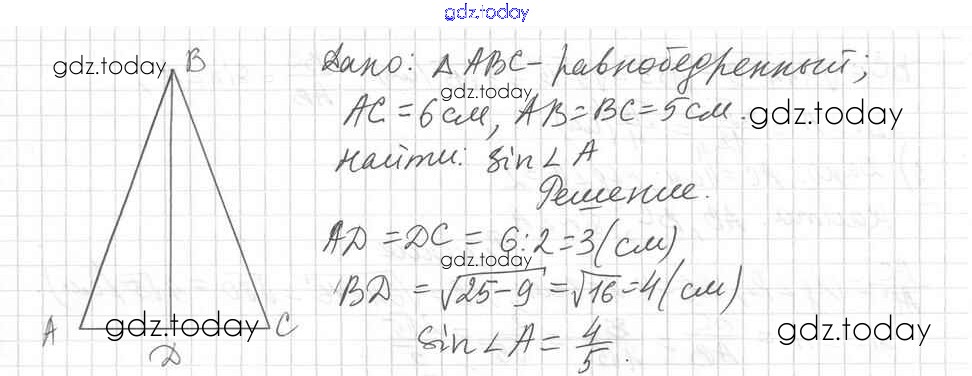 gdz.today
B
gdz.today
Дано: △ ABC - равнобедренный;
gdz.today
AC = 6 см, AB = BC = 5 см.
gdz.today
Найти: sin ∠ A
Решение.
AD = DC = 6 : 2 = 3 (см)
gdz.today
BD = √25-9 = √16 = 4 (см)
A
gdz.today
C
D
sin ∠ A = 4/5.
gdz.today